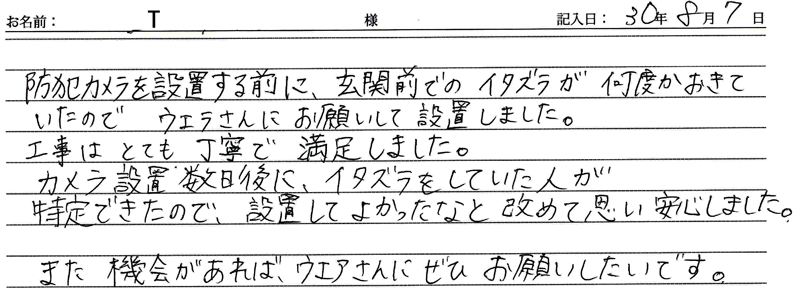 お名前: T 様 記入日: 30年 8月 7日
防犯カメラを設置する前に、玄関前でのイタズラが 何度かおきて
いたので ウェラさんに お願いして 設置しました。
工事は とても 丁寧で 満足しました。
カメラ設置 数日後に、イタズラをしていた人が
特定できたので、設置して よかったなと 改めて思い 安心しました。
また 機会があれば、ウエアさんに ぜひ お願いしたいです。